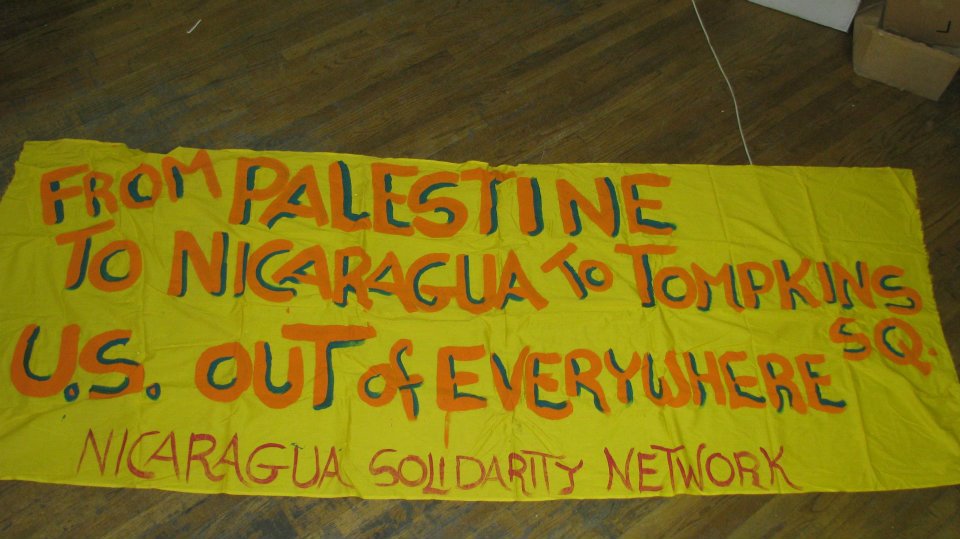 FROM PALESTINE
TO NICARAGUA TO TOMPKINS
SQ.
U.S. OUT of EVERYWHERE
NICARAGUA SOLIDARITY NETWORK